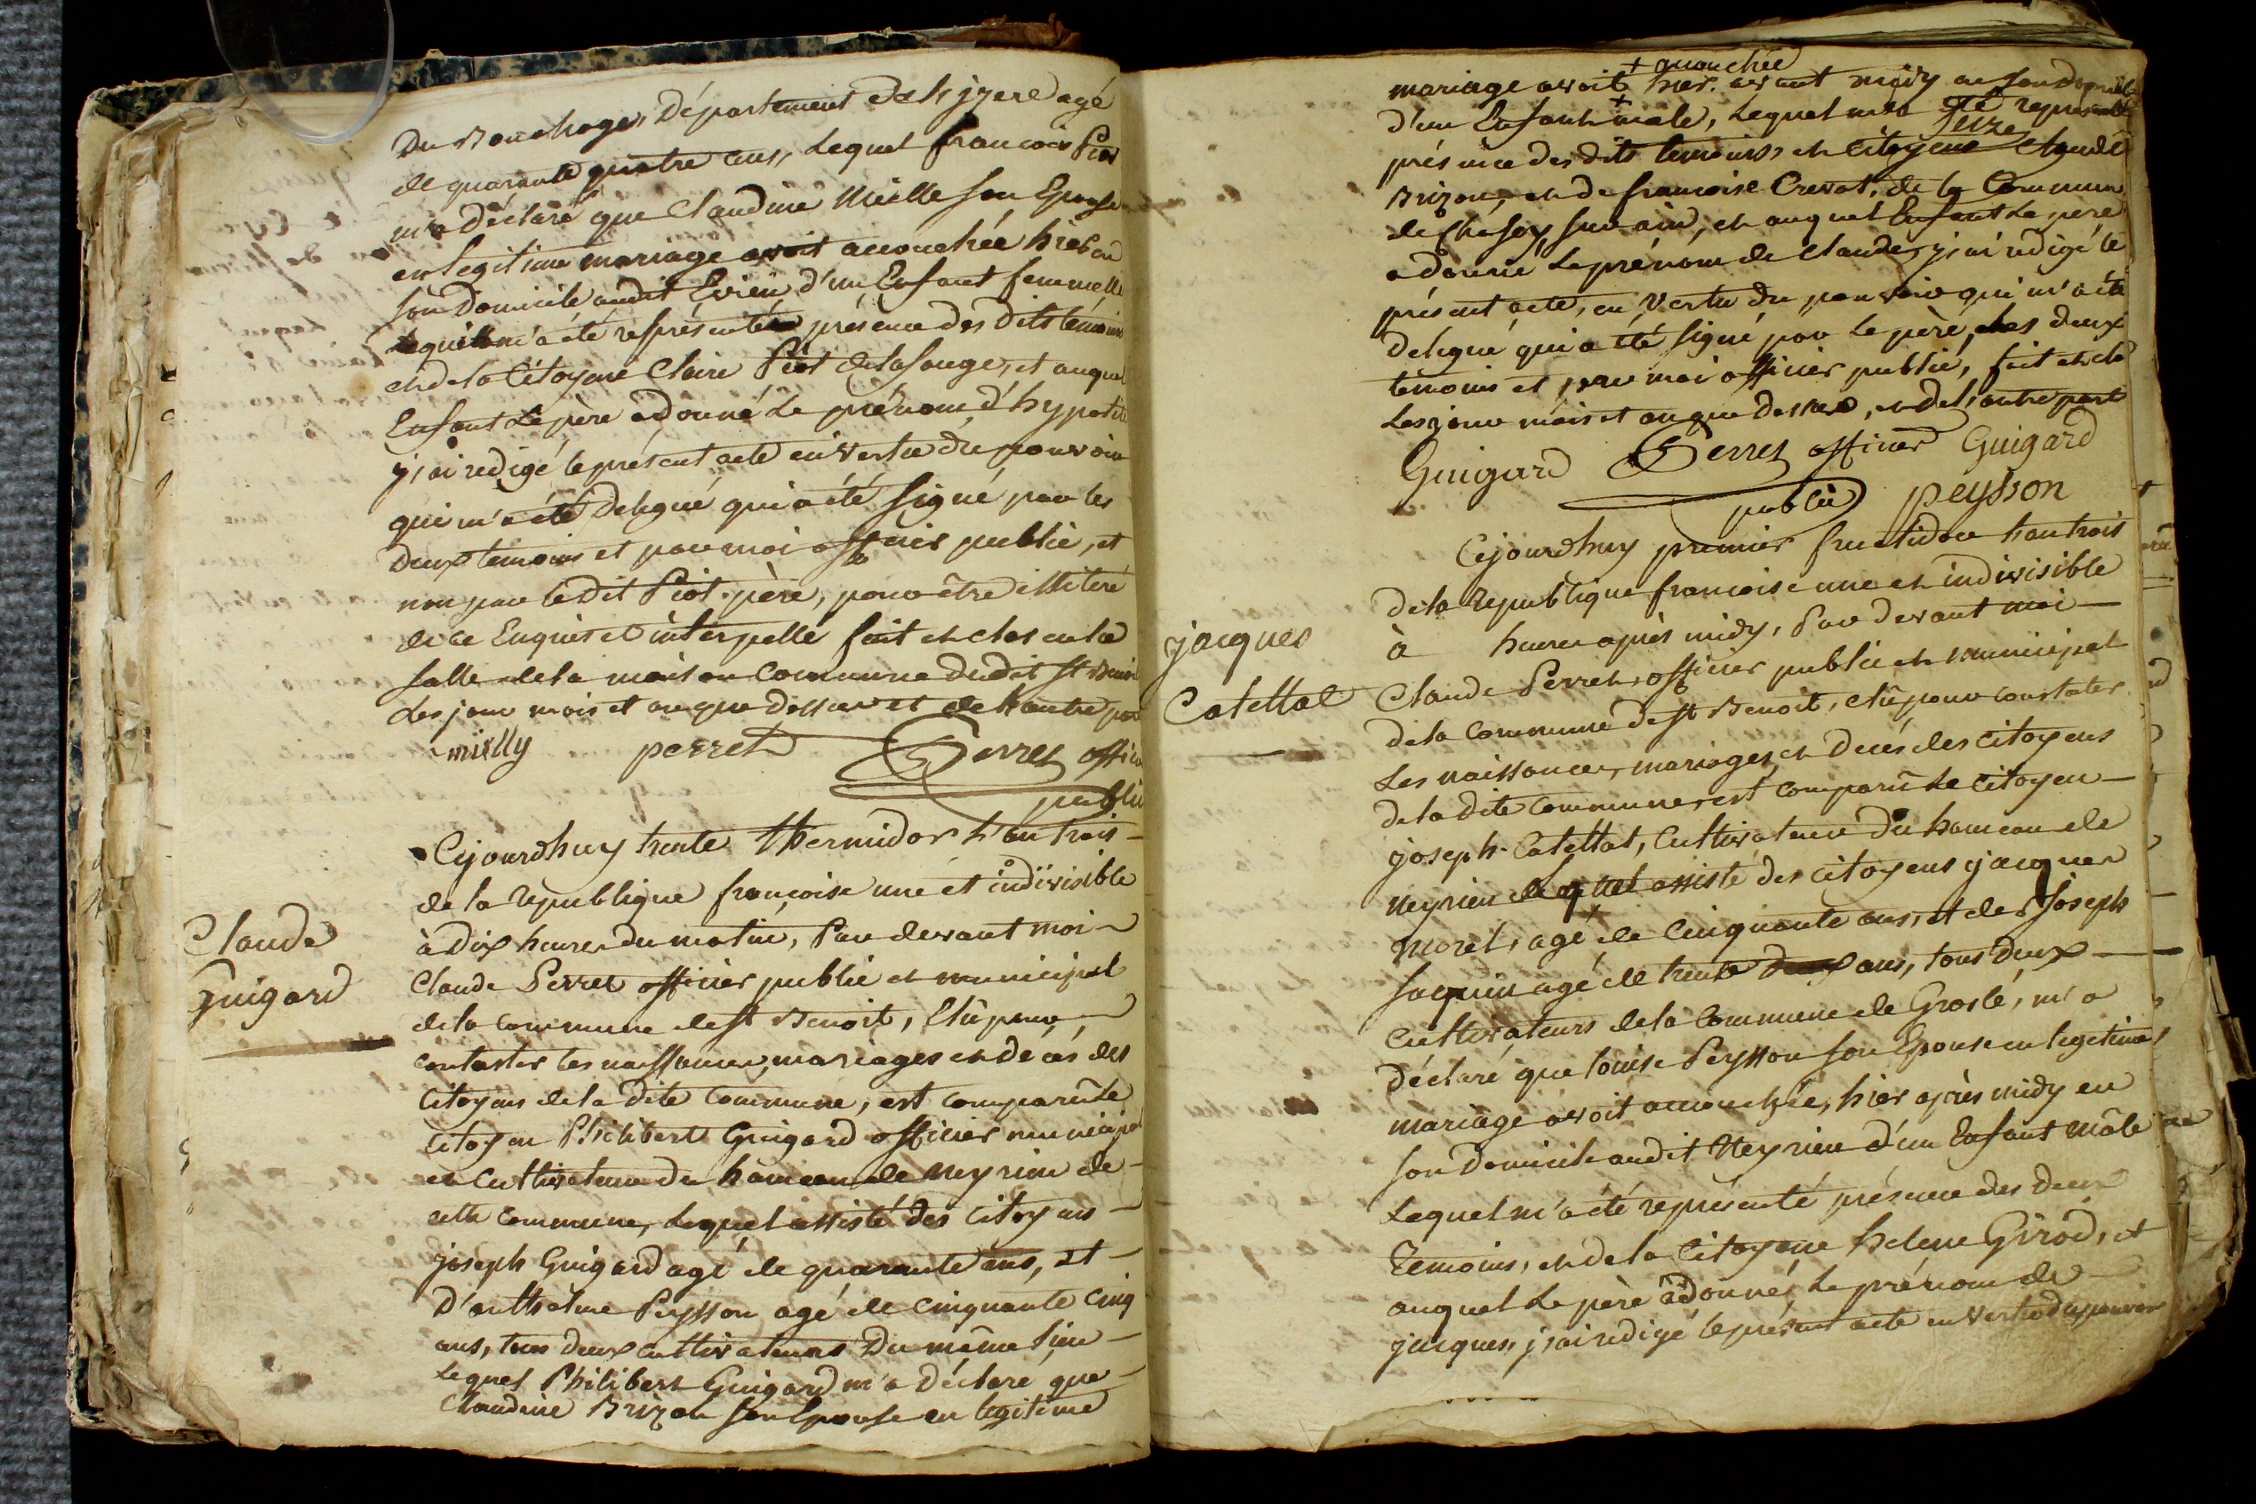 Du Bouchage, Département de l'jzere agé
de quarante quatre ans, Lequel francois Piot
m'a déclaré que Claudine Mielle son Epouse
en legitime mariage avoit accouchée hier en
son Domicile audit Evieu d'un Enfant femmelle
lequelle m'a été représentée présence des dits témoins
et de la Citoyene Claire Piot delasauge, et auquel
Enfant Le père a donné Le prénom d'hypolite
j'ai redigé le présent acte en vertu du pouvoir
qui m'a été delegué qui a été signé par les
Deux temoins et par moi officier public, et
non par le dit Piot père, pour être illiteré
de ce Enquis et interpellé fait et clos en la
salle de la maison Commune dudit St Benoit
Les jour mois et an que dessus et de l'autre part
mielly perret Perret officier
public
Cejourdhuy trente thermidor l'an trois
de la republique françoise une et indivisible
à dix heures du matin, Par devant moi
Claude Perret officier public et municipal
de la commune de St Benoit, Elû pour
Claude
Guigard
contaster les naissances, mariages et décés des
Citoyens de la dite Commune, est comparû le
Citoyen Philibert Guigard officier municipal
et Cultivateur du hameau de Neyrieu de
cette commune, Lequel assisté des Citoyens
joseph Guigard agé de quarante ans, et
D'anthelme Peysson agé de cinquante cinq
ans, tous deux cultivateurs Du même lieu
Lequel Philibert Guigard m'a déclaré que
Claudine Brizon son Epouse en legitime
mariage avoit + hier avant midy
+ accouchée
d'un Enfant mâle, Lequel m'a été représenté
présence des dits temoins, et Citoyens Claude
Brizon, et de francoise Crevat, de la Commune
et auquel Enfant Le pere
a donné Le prénom de Claude, j'ai redigé le
présent acte, en vertu du pouvoir qui m'a été
delegué qui a été signé par le père, les deux
temoins et par moi officier public, fait et clos
Les jour mois et an que dessus, et de l'autre part
Guigard Perret officier Guigard
public peysson
Cejourdhuy premier fructidor l'an trois
de la republique francoise une et indivisible
à heures après midy, Par devant moi
jacques
Catettat
Claude Perret, officier public et municipal
de la Commune de St Benoit, elû pour constater
Les naissances, mariages, et Decés des Citoyens
de la dite Commune, est comparû Le Citoyen
joseph Catettat, Cultivateur Du hameau de
Neyrieu Lequel assisté des Citoyens jacques
Morel, agé de Cinquante ans, et de joseph
Jaquin agé de trente deux ans, tous deux
Cultivateurs de la Commune de Groslé, m'a
déclaré que Louise Peysson son Epouse en legitime
mariage avoit accouchée, hier après midy en
son Domicile audit Neyrieu d'un Enfant mâle
Lequel m'a été représenté présence des deux
Temoins, et de la Citoyene helene Girod, et
auquel Le père a donné Le prénom de
jacques, j'ai redigé le présent acte en vertu du pouvoir